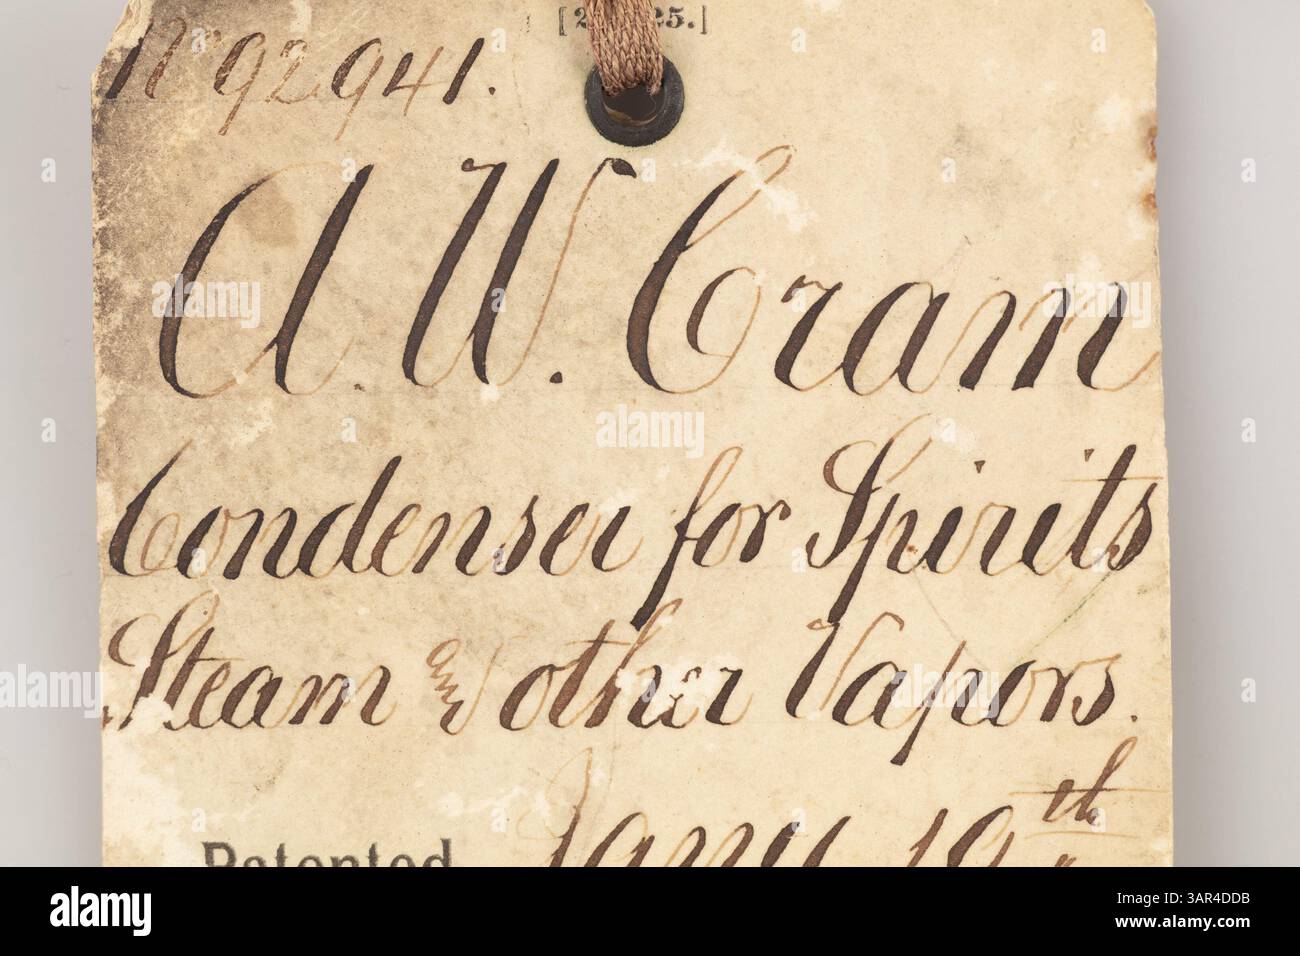 25.]
No 92941.
A. W. Cram
Condenser for Spirits
Steam and other Vapors.
Patented Jany 19th
alamy
Image ID: 3AR4DDB
www.alamy.com